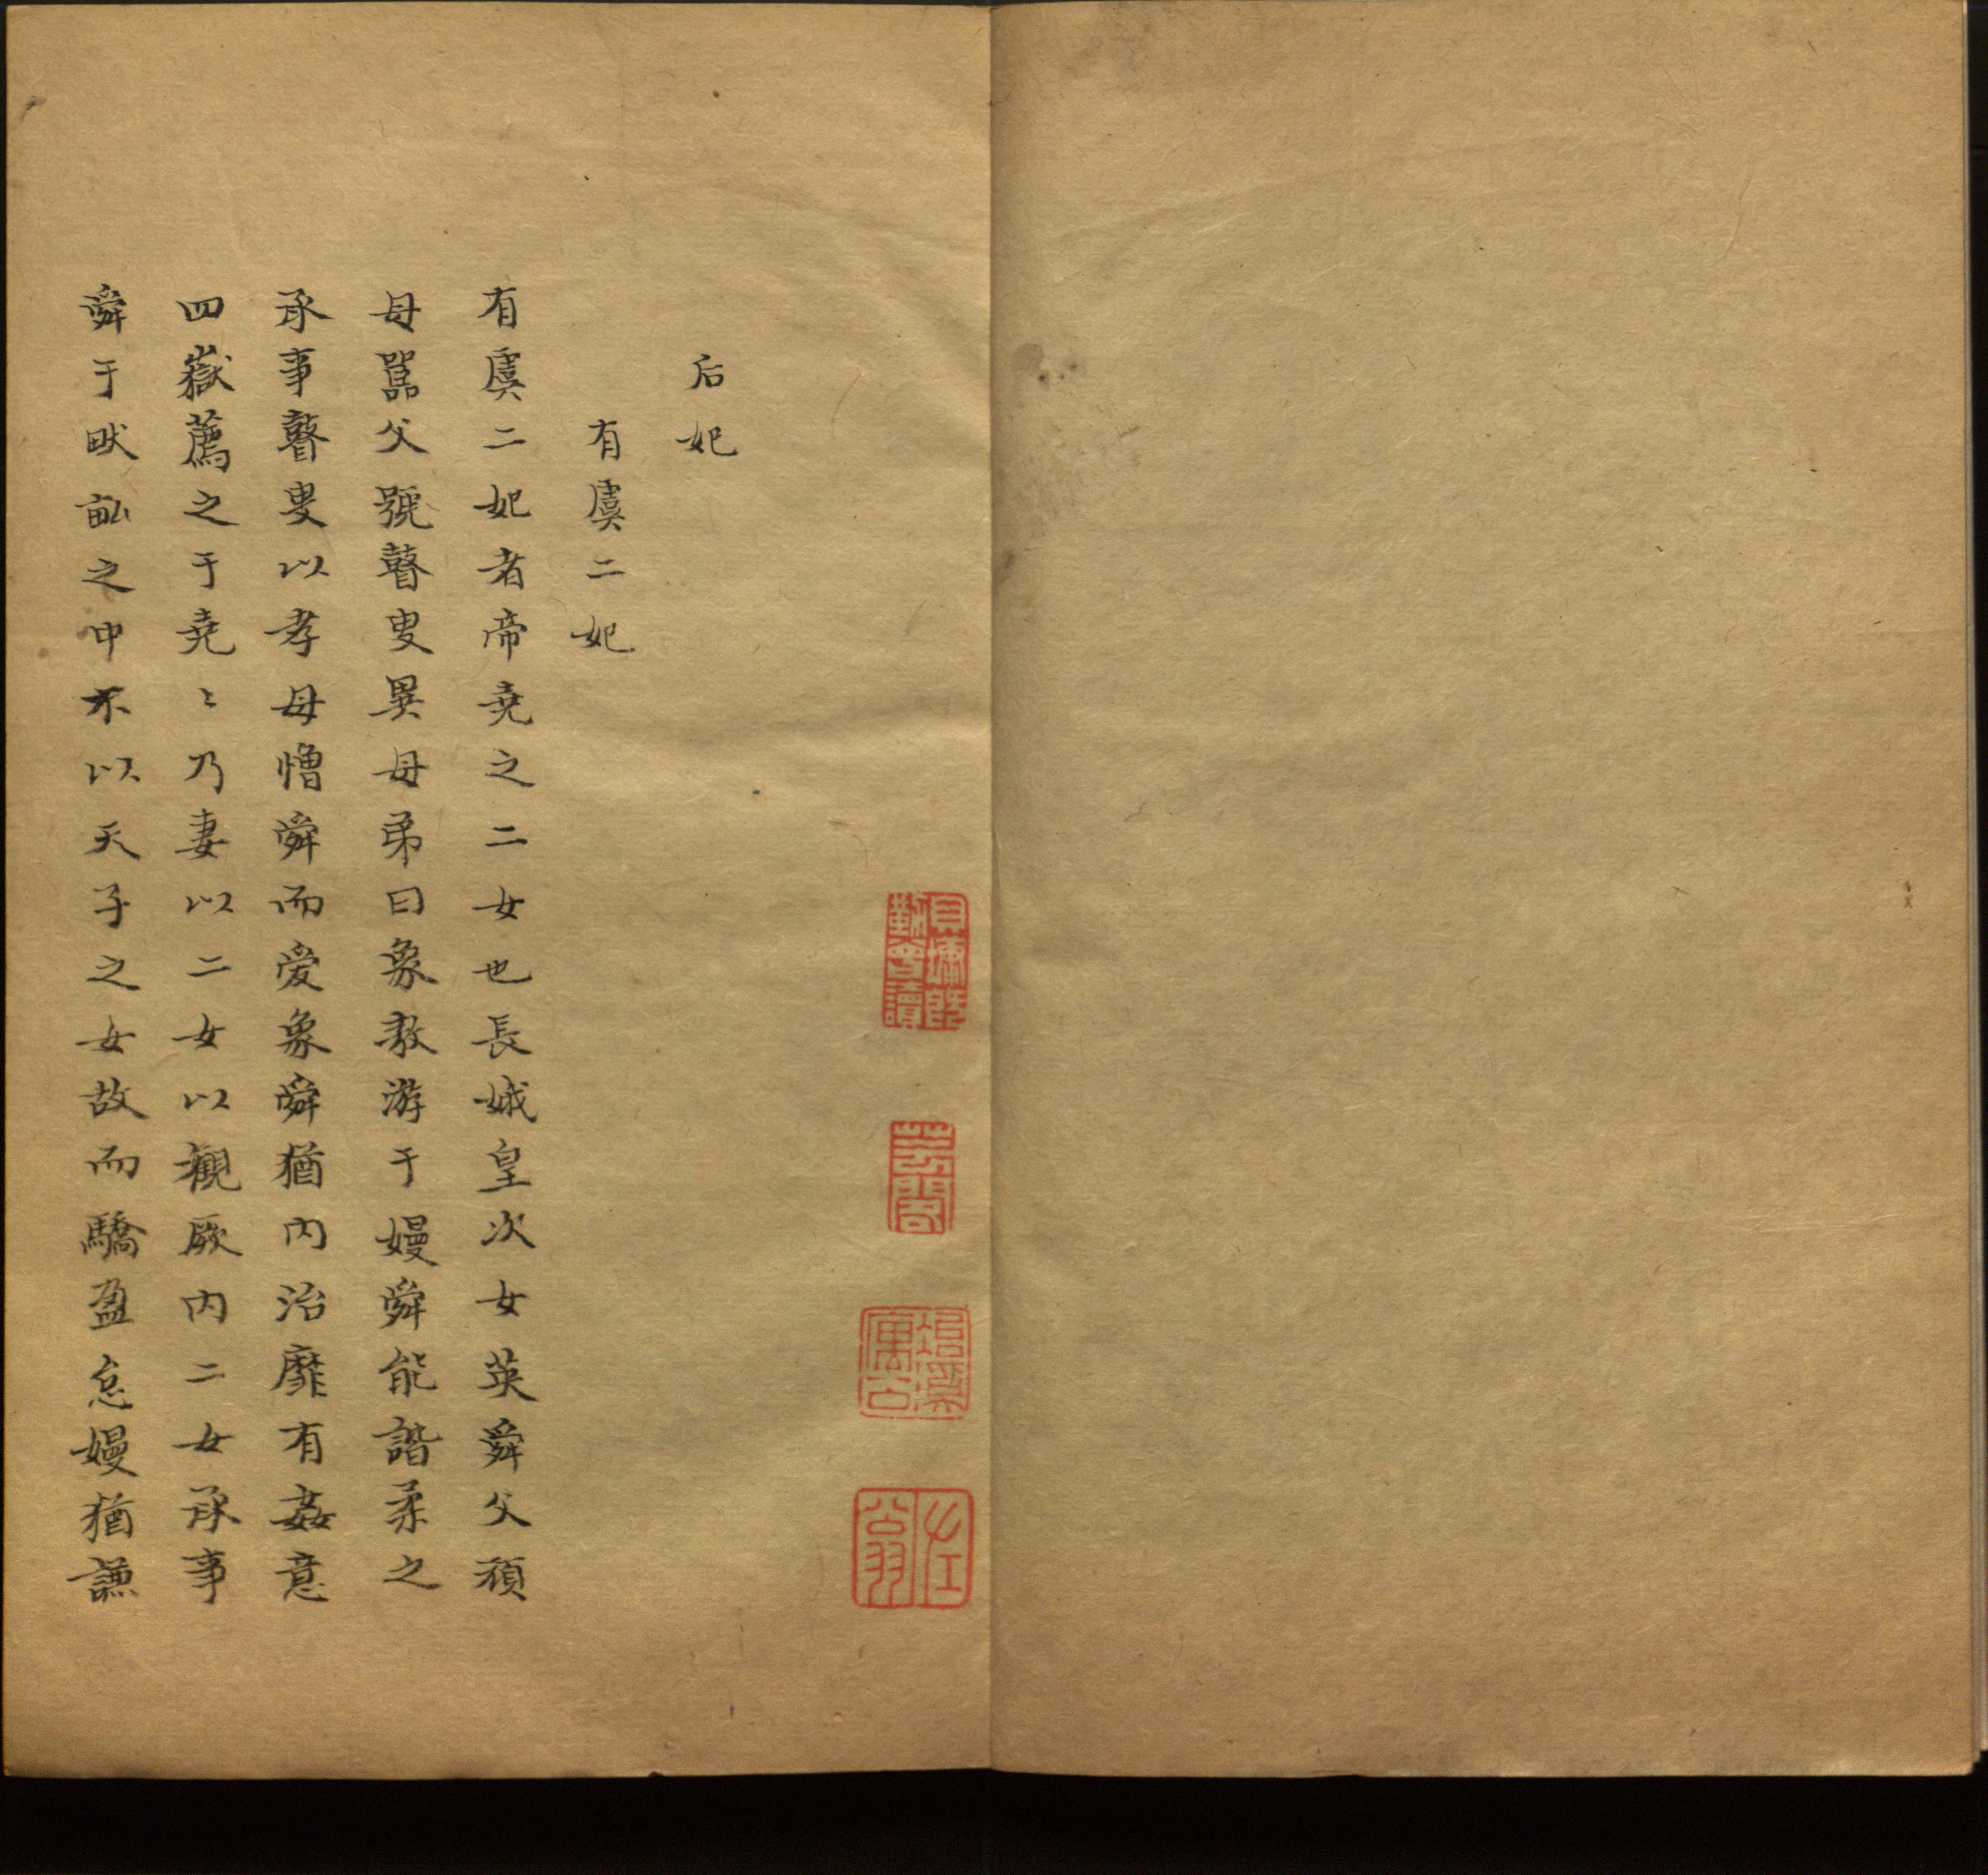 后妃
有虞二妃
有虞二妃者帝堯之二女也長娥皇次女英舜父頑
母嚚父號瞽叟異母弟曰象敖游于嫚舜能諧柔之
承事瞽叟以孝母憎舜而爱象舜猶内治靡有姦意
四嶽薦之于堯〻乃妻以二女以觀厥内二女承事
舜于畎畝之中不以天子之女故而驕盈怠嫚猶謙
貝墉
勤曾讀
萬古
左
公羽